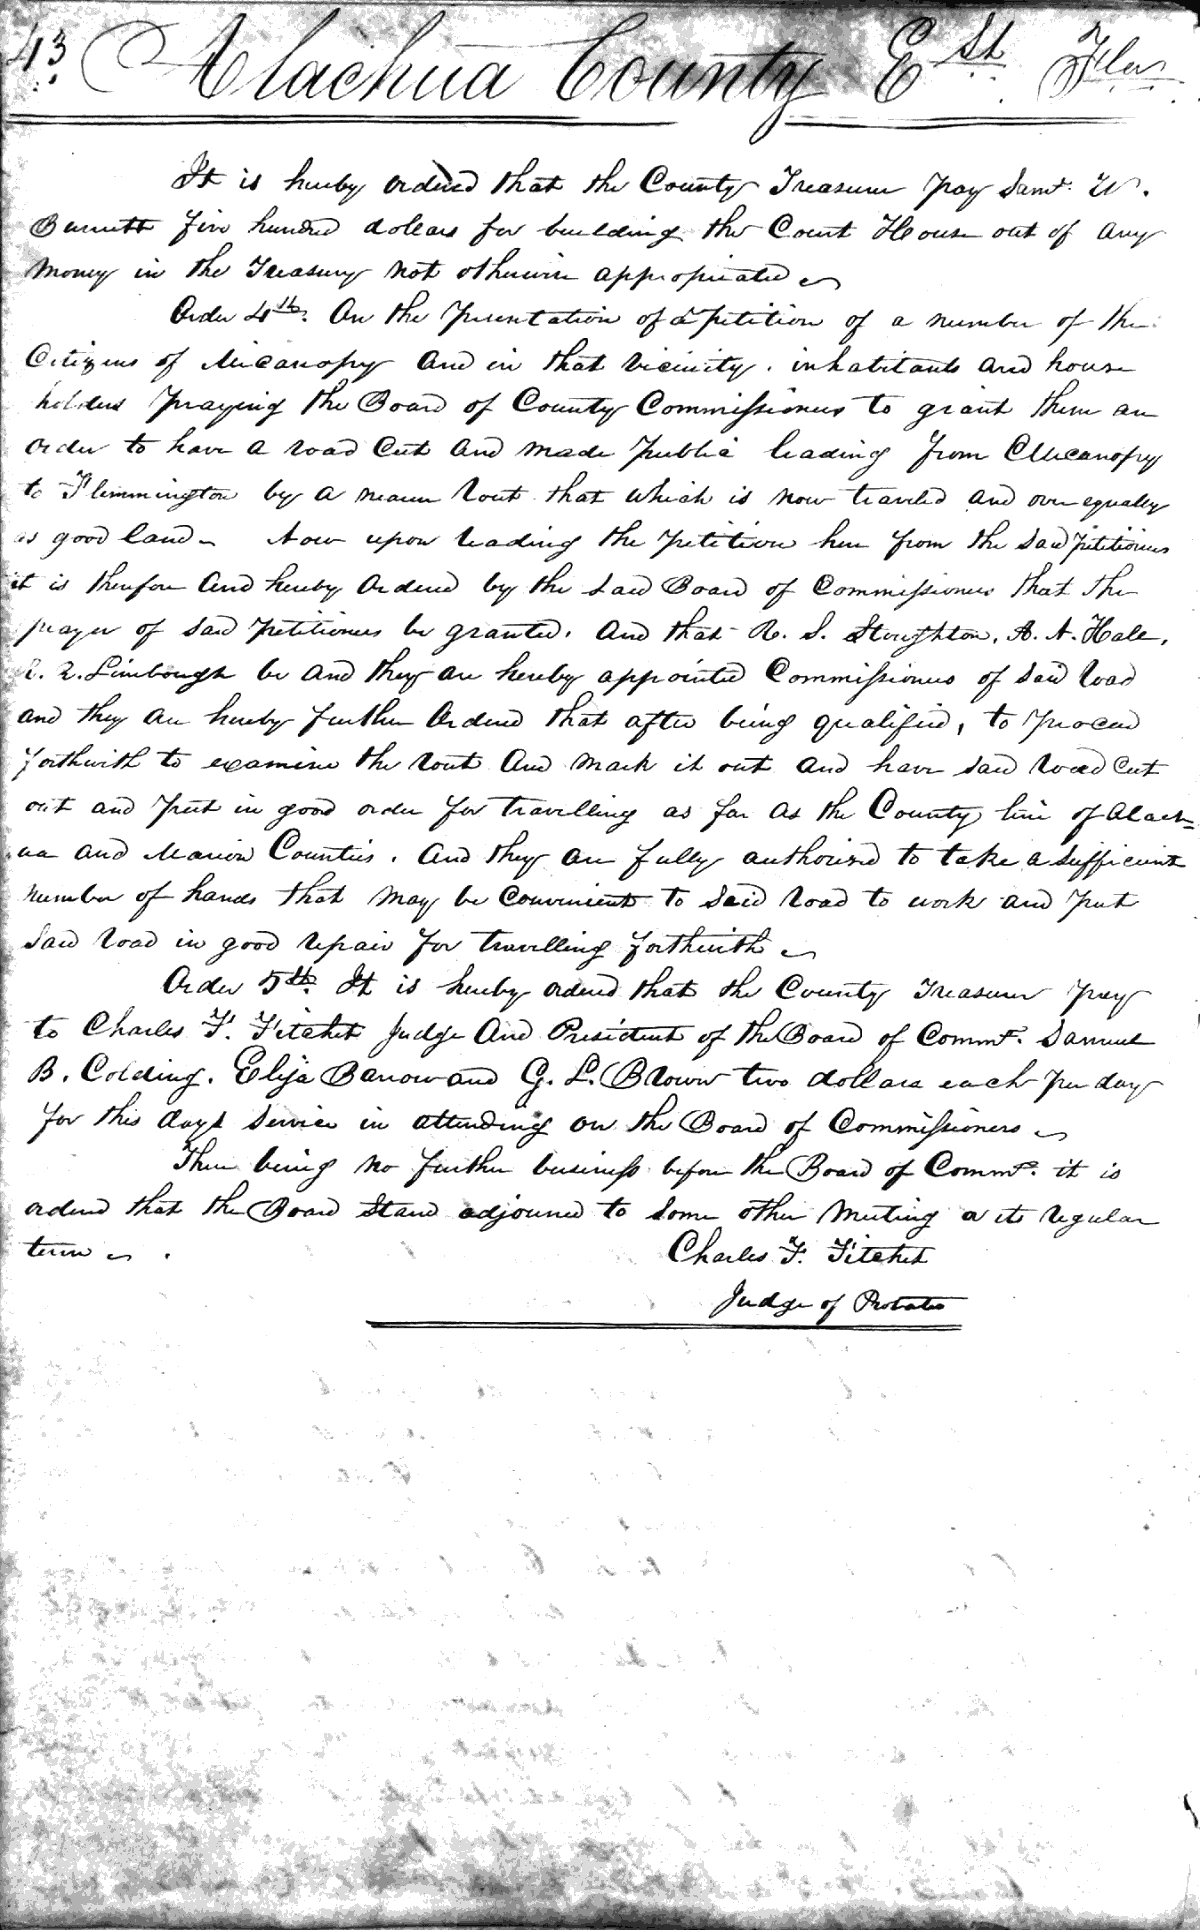 43 Alachua County E St Fla
It is hereby ordered that the County Treasurer pay Saml. W.
Burnett five hundred dollars for building the Court House out of any
money in the Treasury not otherwise appropriated
Order 4th. On the presentation of a petition of a number of the
Citizens of Micanopy and in that vicinity. inhabitants and house
holders praying the Board of County Commissioners to grant them an
order to have a road cut and made public leading from Micanopy
to Flemmington by a nearer rout that which is now traveled and over equally
as good land - Now upon reading the petition here from the said petitioners
it is therefore and hereby ordered by the said Board of Commissioners that the
prayer of said petitioners be granted. And that R. S. Stoughton, A. A. Hale,
Limbough be and they are hereby appointed Commissioners of said road
and they are hereby further ordered that after being qualified, to proceed
forthwith to examine the rout and mark it out and have said road cut
out and put in good order for travelling as far as the County line of Alach=
ua and Marion Counties. And they are fully authorised to take a sufficient
number of hands that may be convenient to said road to work and put
said road in good repair for travelling forthwith
Order 5th. It is hereby ordered that the County Treasurer pay
to Charles F. Fitchet Judge and President of the Board of Commrs. Samuel
B. Colding. Elija Barrow and G. L. Brown two dollars each per day
for this days service in attending on the Board of Commissioners
There being no further business before the Board of Commrs. it is
ordered that the Board stand adjourned to some other meeting or its regular
term.
Charles F. Fitchet
Judge of Probate